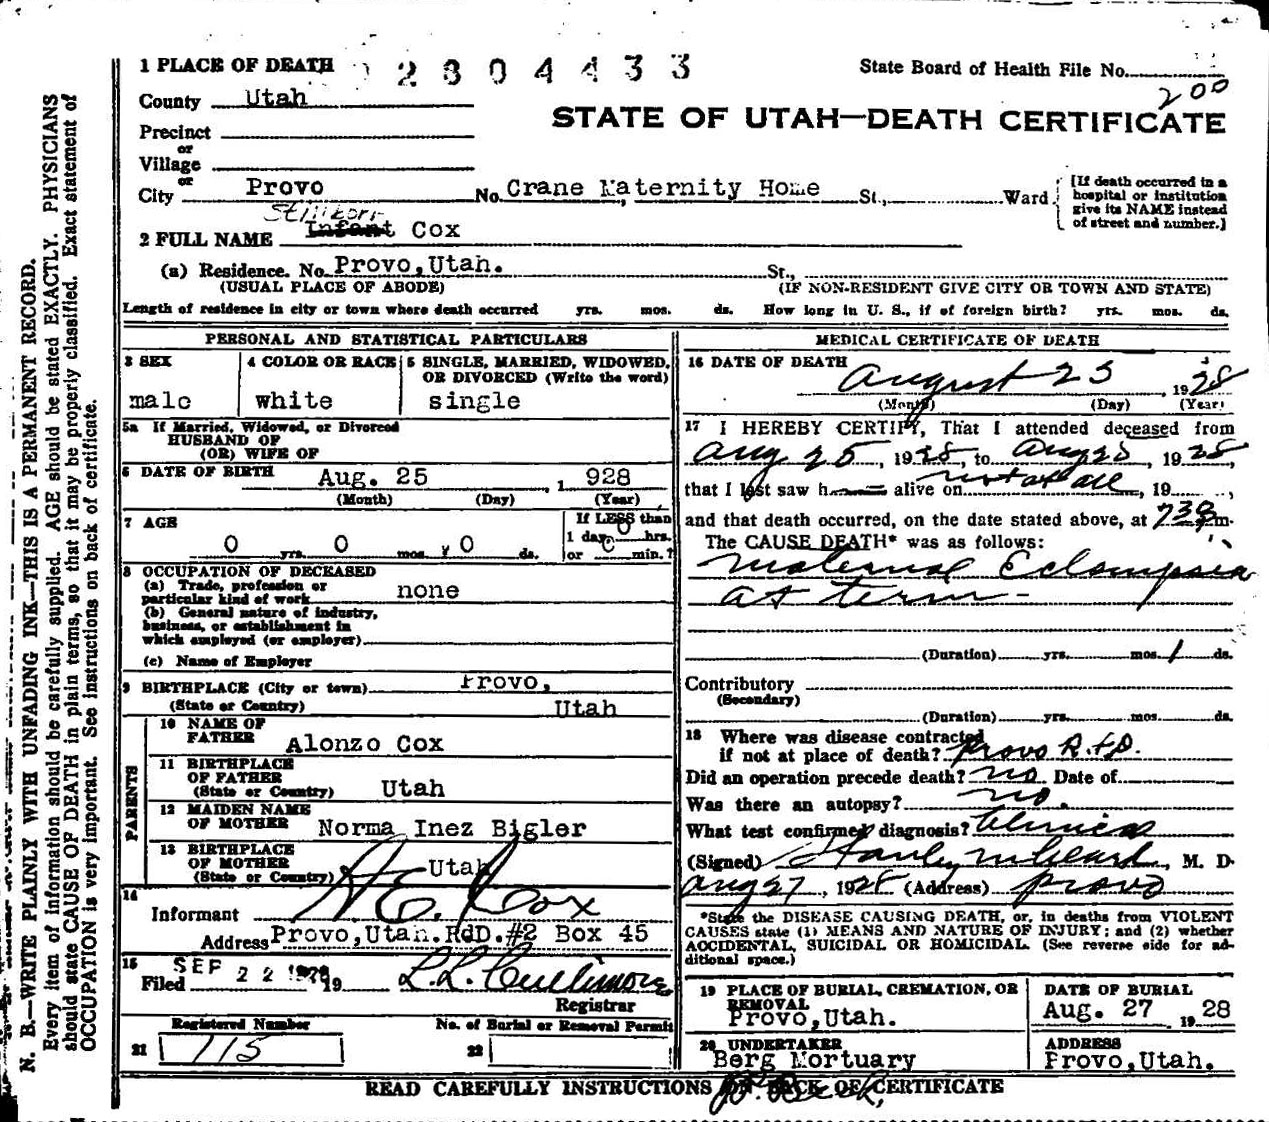 1 PLACE OF DEATH 2804433
State Board of Health File No.
200
County Utah
STATE OF UTAH—DEATH CERTIFICATE
Precinct
or
Village
or
City Provo No. Crane Maternity Home St., Ward
[If death occurred in a
hospital or institution
give its NAME instead
of street and number.]
Stillborn
2 FULL NAME Infant Cox
(a) Residence. No. Provo, Utah. St.,
(USUAL PLACE OF ABODE) (IF NON-RESIDENT GIVE CITY OR TOWN AND STATE)
Length of residence in city or town where death occurred yrs. mos. ds. How long in U. S., if of foreign birth? yrs. mos. ds.
PERSONAL AND STATISTICAL PARTICULARS
3 SEX 4 COLOR OR RACE 5 SINGLE, MARRIED, WIDOWED,
OR DIVORCED (Write the word)
male white single
5a If Married, Widowed, or Divorced
HUSBAND OF
(OR) WIFE OF
6 DATE OF BIRTH Aug. 25, 1928
(Month) (Day) (Year)
7 AGE If LESS than
0 yrs. 0 mos. 0 ds. 1 day, 0 hrs.
or 0 min.?
8 OCCUPATION OF DECEASED
(a) Trade, profession or
particular kind of work none
(b) General nature of industry,
business, or establishment in
which employed (or employer)
(c) Name of Employer
9 BIRTHPLACE (City or town) Provo,
(State or Country) Utah
PARENTS
10 NAME OF
FATHER Alonzo Cox
11 BIRTHPLACE
OF FATHER
(State or Country) Utah
12 MAIDEN NAME
OF MOTHER Norma Inez Bigler
13 BIRTHPLACE
OF MOTHER
(State or Country) Utah
14
Informant Cox
Address Provo, Utah. RdD. #2 Box 45
15
Filed SEP 22 1928 19 L. L. Cullimore
Registrar
Registered Number No. of Burial or Removal Permit
21 715 22
MEDICAL CERTIFICATE OF DEATH
16 DATE OF DEATH
August 25, 1928
(Month) (Day) (Year)
17 I HEREBY CERTIFY, That I attended deceased from
Aug 25, 1928, to Aug 25, 1928,
that I last saw h alive on not at all, 19 ,
and that death occurred, on the date stated above, at 730 pm.
The CAUSE DEATH* was as follows:
Maternal Eclampsia
at term -
(Duration) yrs. mos. 1 ds.
Contributory
(Secondary)
(Duration) yrs. mos. ds.
18 Where was disease contracted
if not at place of death? Provo R.F.D.
Did an operation precede death? no Date of
Was there an autopsy? no.
What test confirmed diagnosis? Clinical
(Signed) Stanley M. Clark, M. D.
Aug 27, 1928 (Address) Provo
*State the DISEASE CAUSING DEATH, or, in deaths from VIOLENT
CAUSES state (1) MEANS AND NATURE OF INJURY; and (2) whether
ACCIDENTAL, SUICIDAL OR HOMICIDAL. (See reverse side for ad-
ditional space.)
19 PLACE OF BURIAL, CREMATION, OR
REMOVAL
Provo, Utah.
DATE OF BURIAL
Aug. 27, 1928
20 UNDERTAKER
Berg Mortuary
ADDRESS
Provo, Utah.
READ CAREFULLY INSTRUCTIONS ON BACK OF CERTIFICATE
N. B.—WRITE PLAINLY WITH UNFADING INK—THIS IS A PERMANENT RECORD.
Every item of information should be carefully supplied. AGE should be stated EXACTLY. PHYSICIANS
should state CAUSE OF DEATH in plain terms, so that it may be properly classified. Exact statement of
OCCUPATION is very important. See instructions on back of certificate.